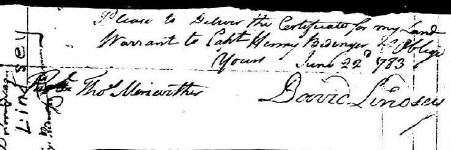 Please to Deliver the Certificate for my Land
Warrant to Capt Henry Bedinger & Oblige
Yours June 22d 1783
Thos Meriwether David Lindsey
Lindsey